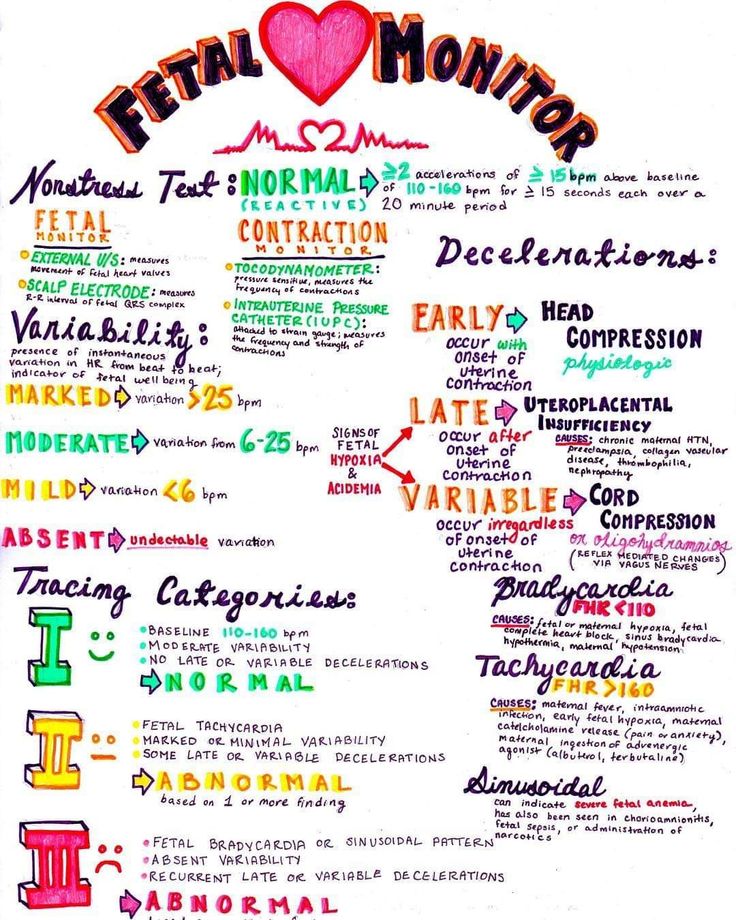 FETAL MONITOR
Nonstress Test: NORMAL ≥2 accelerations of ≥ 15 bpm above baseline
(REACTIVE) of 110-160 bpm for ≥ 15 seconds each over a
20 minute period
FETAL
MONITOR
EXTERNAL U/S: measures
movement of fetal heart valves
SCALP ELECTRODE: measures
R-R interval of fetal QRS complex
CONTRACTION
MONITOR
TOCODYNAMOMETER:
pressure sensitive, measures the
frequency of contractions
INTRAUTERINE PRESSURE
CATHETER (IUPC):
attached to strain gauge; measures
the frequency and strength of
contractions
Variability:
presence of instantaneous
variation in HR from beat to beat;
indicator of fetal well being
MARKED variation >25 bpm
MODERATE variation from 6-25 bpm
MILD variation <6 bpm
ABSENT undectable variation
Decelerations:
EARLY
occur with
onset of
uterine
contraction
HEAD
COMPRESSION
physiologic
SIGNS OF
FETAL
HYPOXIA
&
ACIDEMIA
LATE
occur after
onset of
uterine
contraction
UTEROPLACENTAL
INSUFFICIENCY
CAUSES: chronic maternal HTN,
preeclampsia, collagen vascular
disease, thrombophilia,
nephropathy
VARIABLE
occur irregardless
of onset of
uterine
contraction
CORD
COMPRESSION
or oligohydramnios
(REFLEX MEDIATED CHANGES
VIA VAGUS NERVES)
Bradycardia
FHR <110
CAUSES: fetal or maternal hypoxia, fetal
complete heart block, sinus bradycardia
hypothermia, maternal hypotension
Tachycardia
FHR >160
CAUSES: maternal fever, intraamniotic
infection, early fetal hypoxia, maternal
catelcholamine release (pain or anxiety),
maternal ingestion of adrenergic
agonist (albutrol, terbutaline)
Sinusoidal
can indicate severe fetal anemia,
has also been seen in chorioamnionitis,
fetal sepsis, or administration of
narcotics
Tracing Categories:
I
BASELINE 110-160 bpm
MODERATE VARIABILITY
NO LATE OR VARIABLE DECELERATIONS
NORMAL
II
FETAL TACHYCARDIA
MARKED OR MINIMAL VARIABILITY
SOME LATE OR VARIABLE DECELERATIONS
ABNORMAL
based on 1 or more finding
III
FETAL BRADYCARDIA OR SINUSOIDAL PATTERN
ABSENT VARIABILITY
RECURRENT LATE OR VARIABLE DECELERATIONS
ABNORMAL